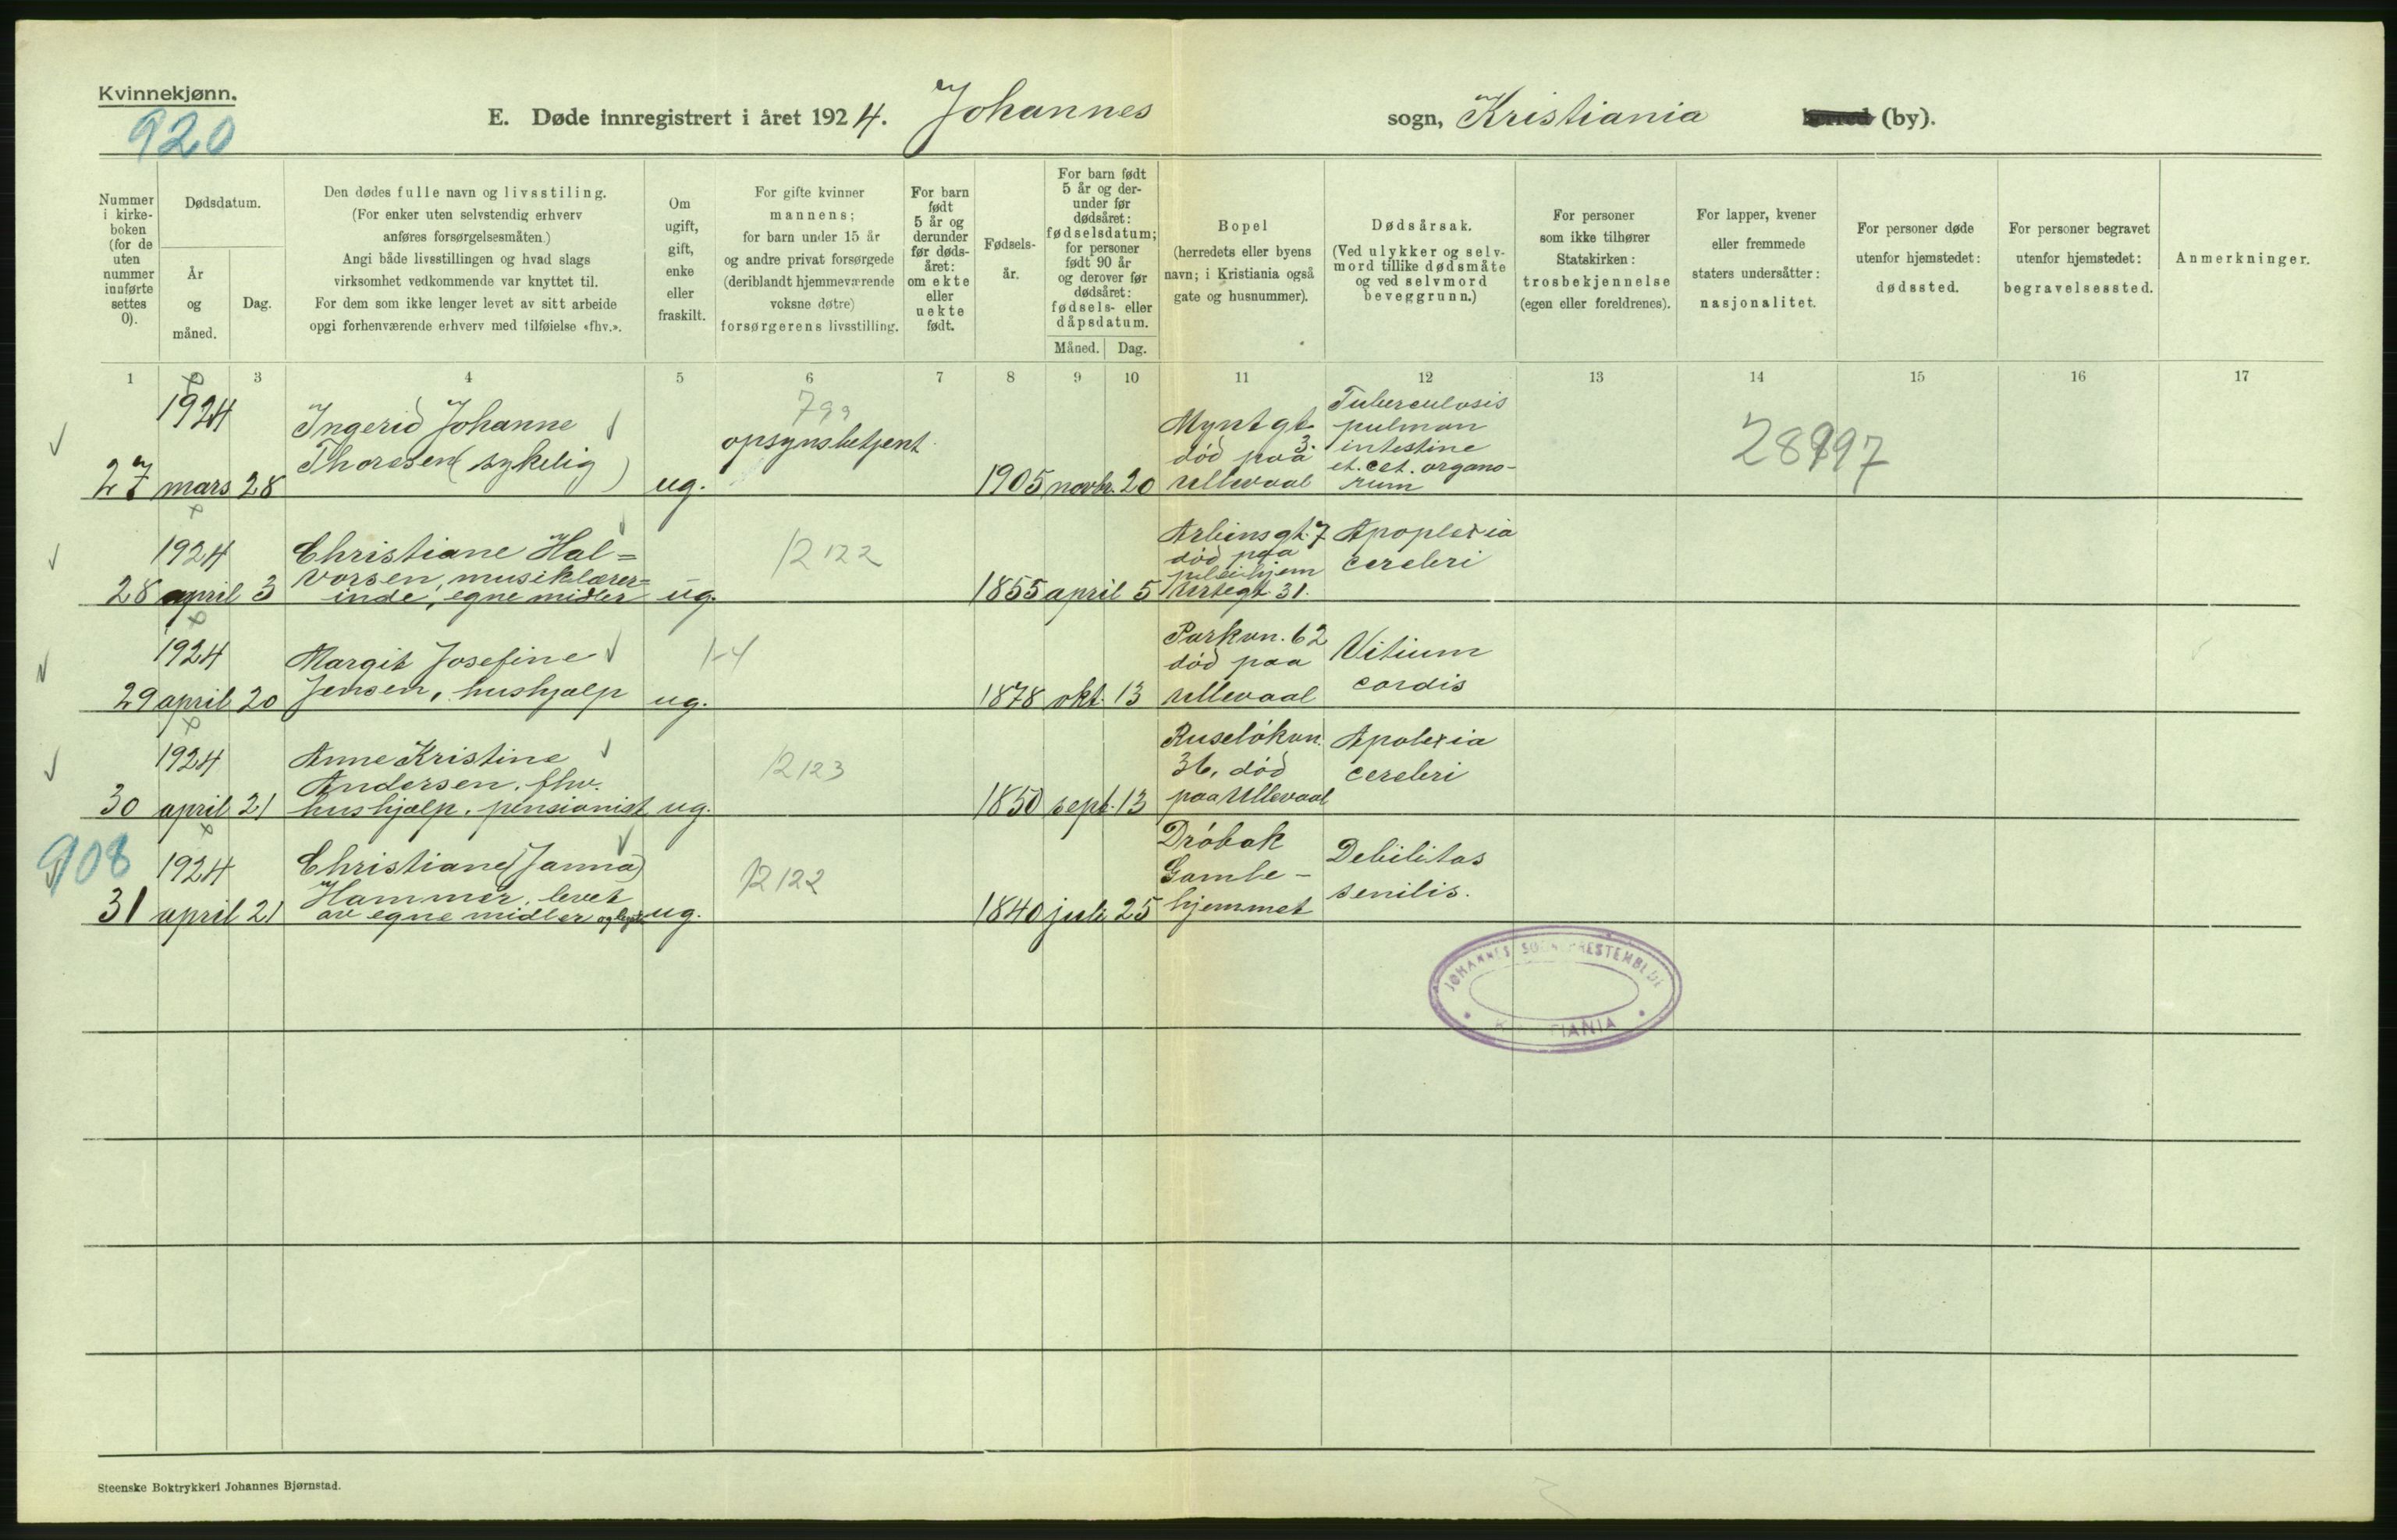 Kvinnekjønn.
920
E. Døde innregistrert i året 1924. Johannes sogn, Kristiania herred (by).
Nummer
i kirke-
boken
(for de
uten
nummer
innførte
settes
0).
Dødsdatum.
År
og
måned.
Dag.
Den dødes fulle navn og livsstiling.
(For enker uten selvstendig erhverv
anføres forsørgelsesmåten.)
Angi både livsstillingen og hvad slags
virksomhet vedkommende var knyttet til.
For dem som ikke lenger levet av sitt arbeide
opgi forhenværende erhverv med tilføielse «fhv.».
Om
ugift,
gift,
enke
eller
fraskilt.
For gifte kvinner
mannens;
for barn under 15 år
og andre privat forsørgede
(deriblandt hjemmeværende
voksne døtre)
forsørgerens livsstilling.
For barn
født
5 år og
derunder
før døds-
året:
om ekte
eller
uekte
født.
Fødsels-
år.
For barn født
5 år og der-
under før
dødsåret:
fødselsdatum;
for personer
født 90 år
og derover før
dødsåret:
fødsels- eller
dåpsdatum.
Måned. Dag.
Bopel
(herredets eller byens
navn; i Kristiania også
gate og husnummer).
Dødsårsak.
(Ved ulykker og selv-
mord tillike dødsmåte
og ved selvmord
beveggrunn.)
For personer
som ikke tilhører
Statskirken:
trosbekjennelse
(egen eller foreldrenes).
For lapper, kvener
eller fremmede
staters undersåtter:
nasjonalitet.
For personer døde
utenfor hjemstedet:
dødssted.
For personer begravet
utenfor hjemstedet:
begravelsessted.
Anmerkninger.
1 2 3 4 5 6 7 8 9 10 11 12 13 14 15 16 17
27
1924
mars 28
Ingerid Johanne
Thoresen (sykelig)
ug.
opsynsbetjent
1905 novbr. 20
Myntgt.
3.
død paa
Ullevaal
Tuberculosis
pulmon
intestine
et. cet. organo-
rum
28
1924
april 3
Christiane Hal=
vorsen, musiklærer=
inde, egne midler
ug.
12122
1855 april 5
Arbinsgt. 7
død paa
pleiehjem
Urtegt. 31.
Apoplexia
cerebri
29
1924
april 20
Margit Josefine
Jensen, hushjælp
ug.
1-4
1878 okt. 13
Parkvn. 62
død paa
Ullevaal
Vitium
cordis
30
1924
april 21
Anne Kristine
Andersen, fhv.
hushjælp. pensionist
ug.
12123
1850 sept. 13
Ruseløkvn.
36, død
paa Ullevaal
Apolexia
cerebri
908
31
1924
april 21
Christiane (Janna)
Hammer, levet
av egne midler
ug.
12122
1840 juli 25
Drøbak
Gamle-
hjemmet
Debilitas
senilis.
JOHANNES
KRISTIANIA
Steenske Boktrykkeri Johannes Bjørnstad.